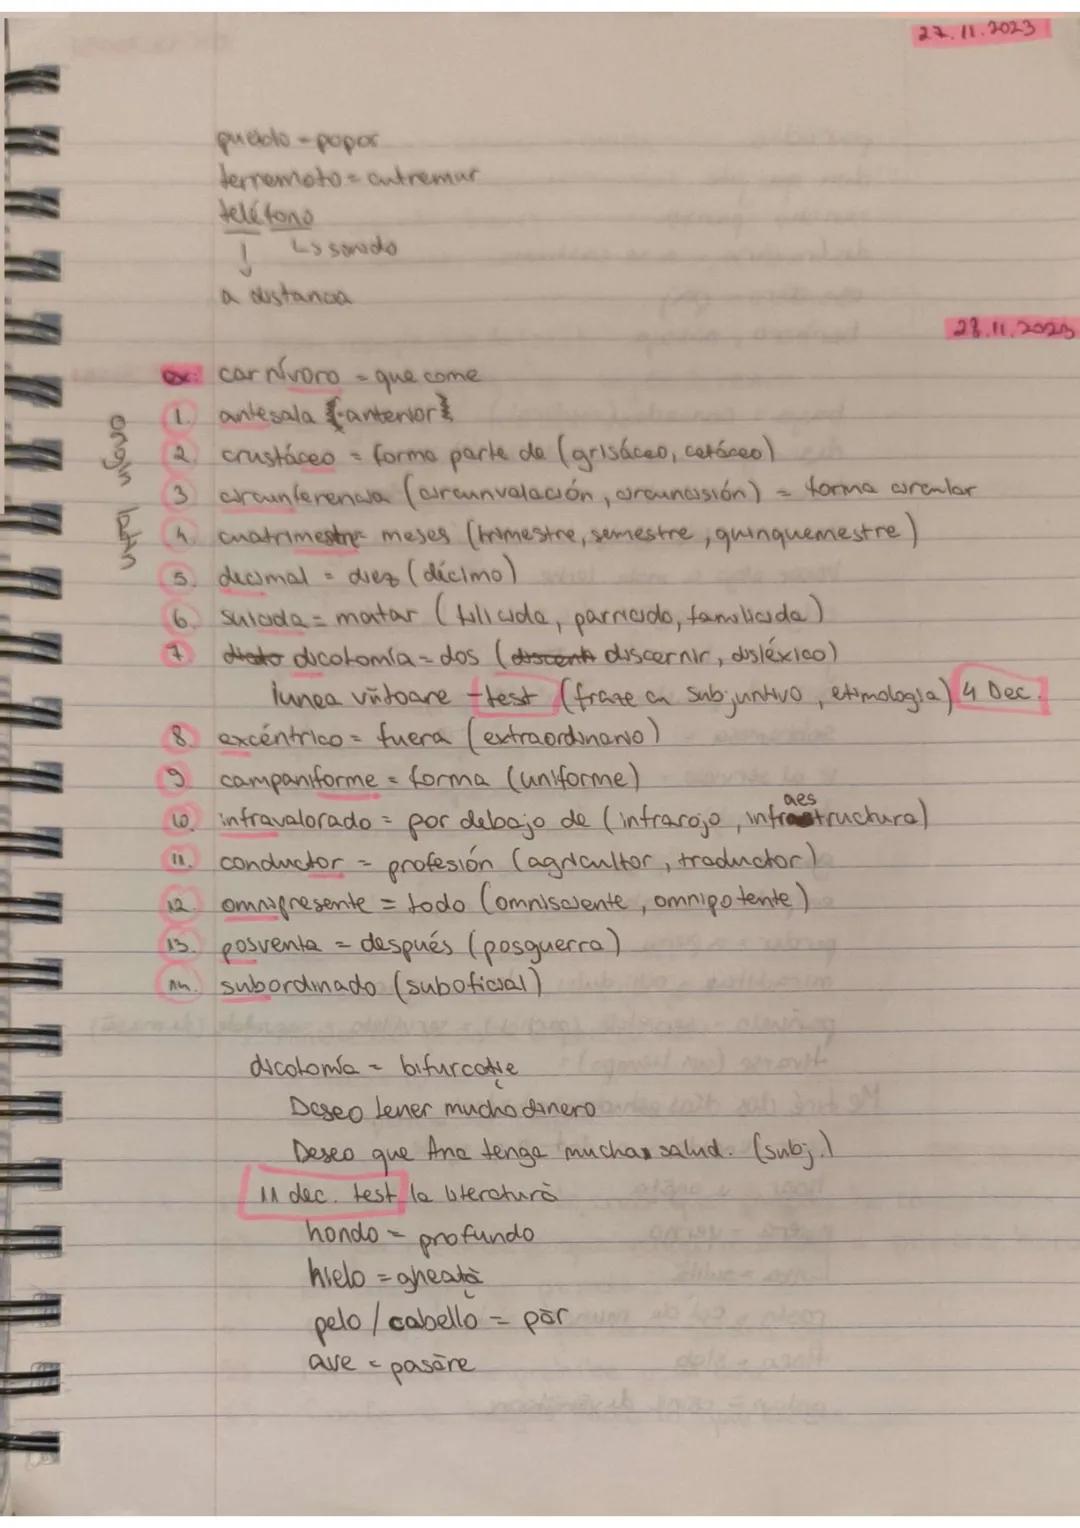 27.11.2023
pueblo = popor
terremoto = cutremur
teléfono
↳ sonido
↓
a distancia
28.11.2023
ex: carnívoro = que come
1. antesala {-anterior}
2. crustáceo = forma parte de (grisáceo, cetáceo)
3 circunferencia (circunvalación, circuncisión) = forma circular
4. cuatrimestre = meses (trimestre, semestre, quinquemestre)
5. decimal = diez (décimo)
6. suicida = matar (filicida, parricida, familicida)
7 dicotomía = dos (discernir, disléxico)
lunea viitoare - test (fraze cu subjuntivo, etimologia) 4 Dec.
8. excéntrico = fuera (extraordinario)
9 campaniforme = forma (uniforme)
10. infravalorado = por debajo de (infrarojo, infraestructura)
11. conductor = profesión (agricultor, traductor)
12. omnipresente = todo (omnisciente, omnipotente)
13. posventa = después (posguerra)
14. subordinado (suboficial)
dicotomía = bifurcație
Deseo tener mucho dinero
Deseo que Ana tenga mucha salud. (subj.)
11 dec. test la literatură
hondo = profundo
hielo = gheață
pelo / cabello = păr
ave = pasăre